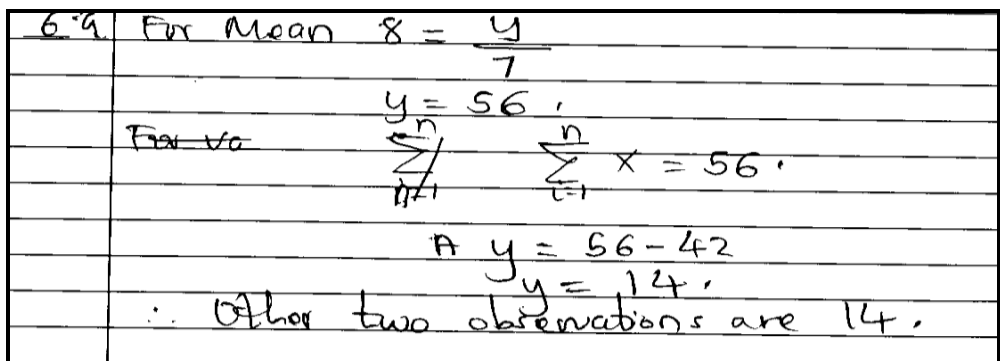 6.a For Mean 8 = y/7
y = 56.
For va n Σ n=1 n Σ i=1 x = 56.
A y = 56 - 42
y = 14.
∴ Other two observations are 14.